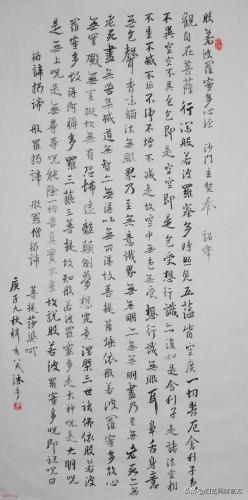 般若波羅蜜多心經 沙門玄奘奉 詔譯
觀自在菩薩行深般若波羅蜜多時照見五蘊皆空度一切苦厄舍利子色
不異空空不異色色即是空空即是色受想行識亦復如是舍利子是諸法空相
不生不滅不垢不淨不增不減是故空中無色無受想行識無眼耳鼻舌身意
無色聲香味觸法無眼界乃至無意識界無無明亦無無明盡乃至無老死亦無
老死盡無苦集滅道無智亦無得以無所得故菩提薩埵依般若波羅蜜多故心
無罣礙無罣礙故無有恐怖遠離顛倒夢想究竟涅槃三世諸佛依般若波
羅蜜多故得阿耨多羅三藐三菩提故知般若波羅蜜多是大神咒是大明咒
是無上咒是無等等咒能除一切苦真實不虛故說般若波羅蜜多咒即說咒曰
揭諦揭諦 般羅揭諦 般羅僧揭諦 菩提莎婆呵
庚子九秋